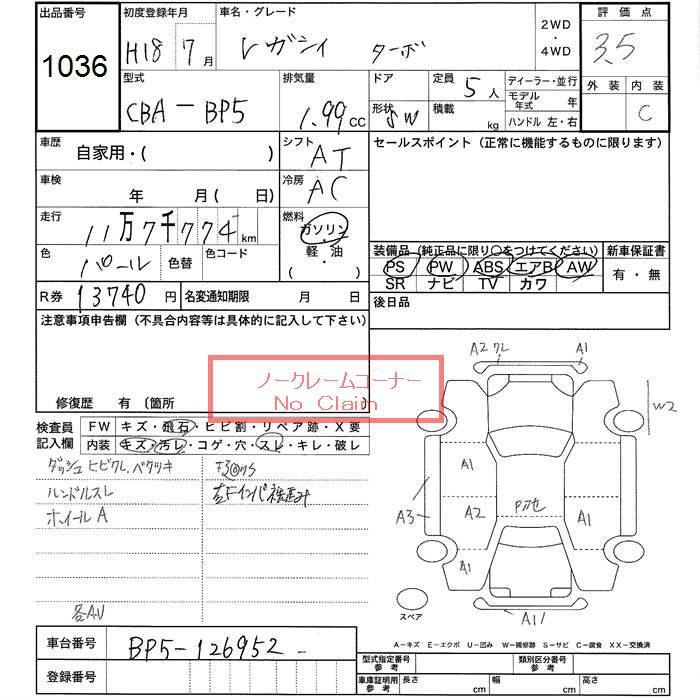 出品番号 初度登録年月 車名・グレード 2WD ・ 4WD 評価点
1036 H18 7月 レガシィ ターボ 3.5
型式 排気量 ドア 定員 5人 ディーラー・並行 外装 内装
CBA-BP5 1.99cc 形状 SW 積載 kg モデル年式 年 C
ハンドル 左・右
車歴 自家用・( ) シフト AT セールスポイント(正常に機能するものに限ります)
車検 年 月( 日) 冷房 AC
走行 11万7千774km 燃料 ガソリン・軽・油 ( )
色 パール 色替 色コード
装備品 (純正品に限り〇をつけてください) 新車保証書
PS PW ABS エアB AW 有・無
SR ナビ TV カワ
R券 13740円 名変通知期限 月 日 後日品
注意事項申告欄(不具合内容等は具体的に記入して下さい)
ノークレームコーナー
No Claim
修復歴 有 (箇所 )
検査員記入欄 FW キズ・飛石・ヒビ割・リペア跡・X要
内装 キズ・汚レ・コゲ・穴・スレ・キレ・破レ
ダッシュ ヒビワレ、ベタツキ
ハンドルスレ
ホイールA
各AU
A2 ワレ A1
W2
A1
A3 A2 A1
A1
A11
スペア
A-キズ E-エクボ U-凹み W-補修跡 S-サビ C-腐食 XX-交換済
車台番号 BP5-126952
登録番号
型式指定番号 参考 類別区分番号 参考
車庫証明用 参考 長さ cm 幅 cm 高さ cm